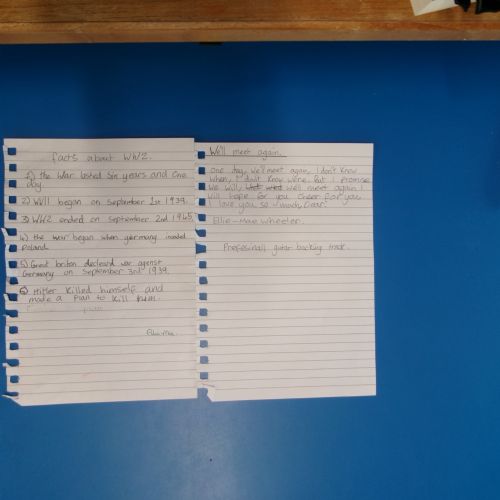 facts about WW2.
1) the War lasted Six years and One
day.
2) WWII began on September 1st 1939.
3) WW2 ended on September 2nd 1945
4) the war began when germany invaded
Poland.
5) Great briton decleard war against
Germany on September 3rd 1939.
6) Hitler killed himself and
made a plan to kill him.
Ellie-Mae.
We'll meet again.
one day, We'll meet again, I don't know
when, I don't know were. But I promise
We will, Well meet again I
will hope for you cheer for you
I love you, so much, Dear.
Ellie-Mae wheeler.
Profesinall guitar backing track.